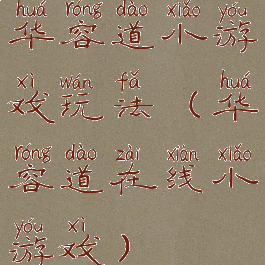 huá róng dào xiǎo yóu
华容道小游
xì wán fǎ huá
戏玩法（华
róng dào zài xiàn xiǎo
容道在线小
yóu xì
游戏）